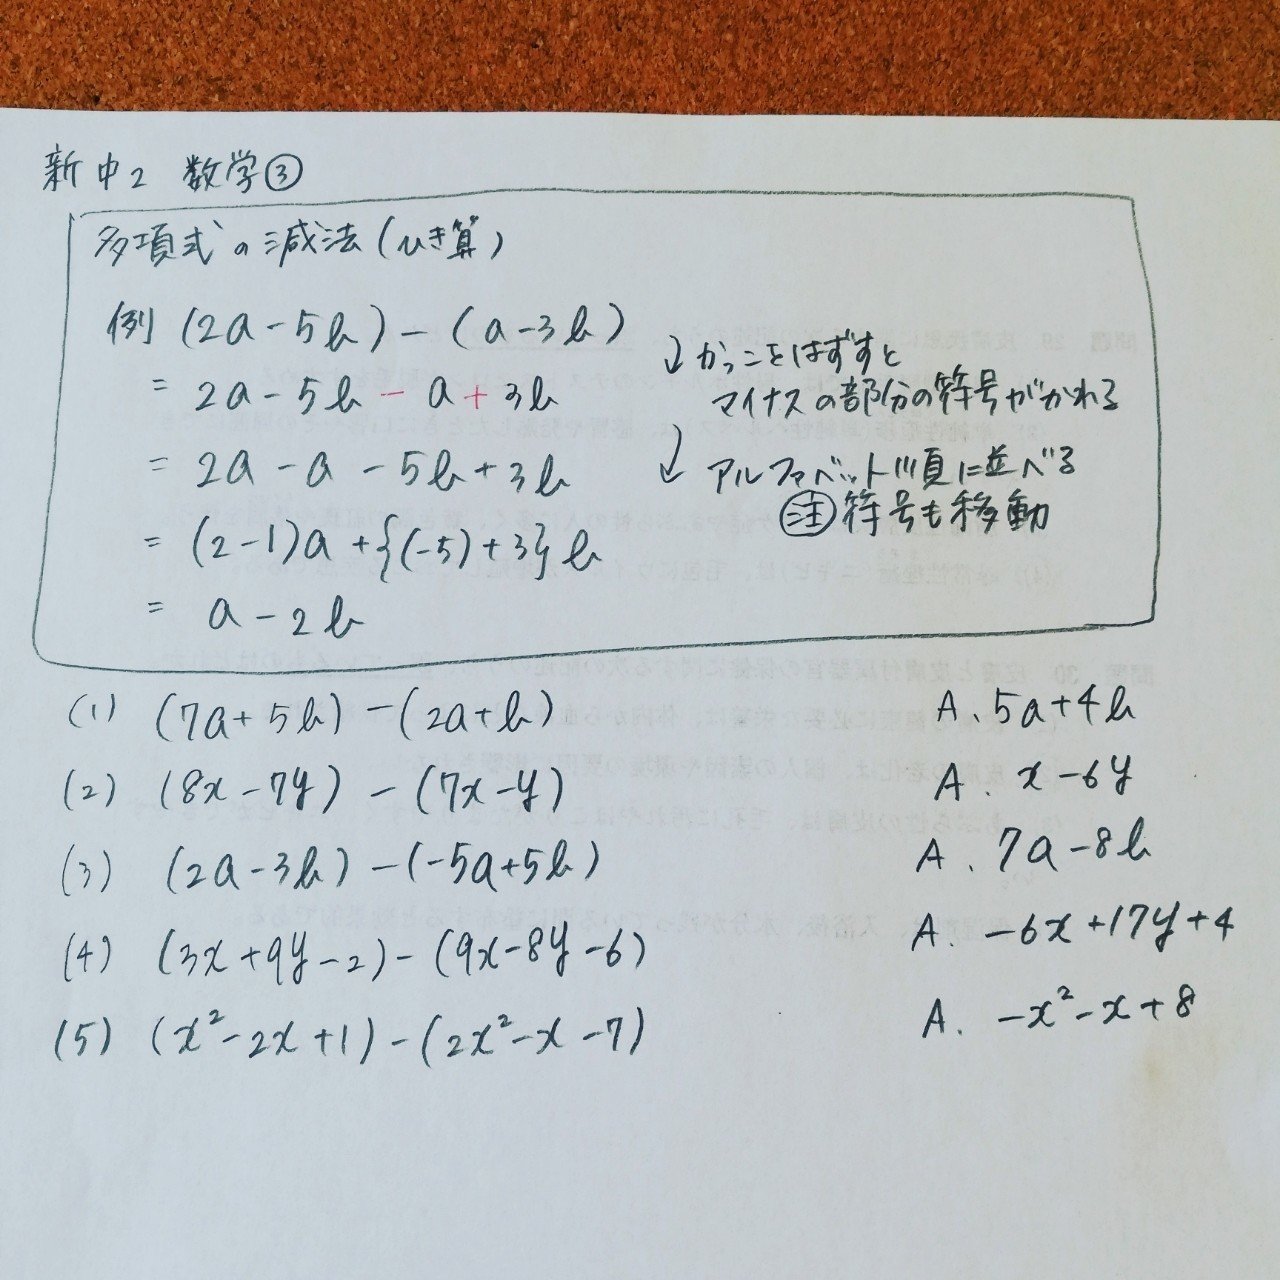 新中2 数学③
多項式の減法(ひき算)
例 (2a-5b)-(a-3b)
= 2a-5b-a+3b
↓かっこをはずすと
マイナスの部分の符号がかわる
= 2a-a-5b+3b
↓アルファベット順に並べる
注 符号も移動
= (2-1)a+{(-5)+3}b
= a-2b
(1) (7a+5b)-(2a+b) A. 5a+4b
(2) (8x-7y)-(7x-y) A. x-6y
(3) (2a-3b)-(-5a+5b) A. 7a-8b
(4) (3x+9y-2)-(9x-8y-6) A. -6x+17y+4
(5) (x²-2x+1)-(2x²-x-7) A. -x²-x+8